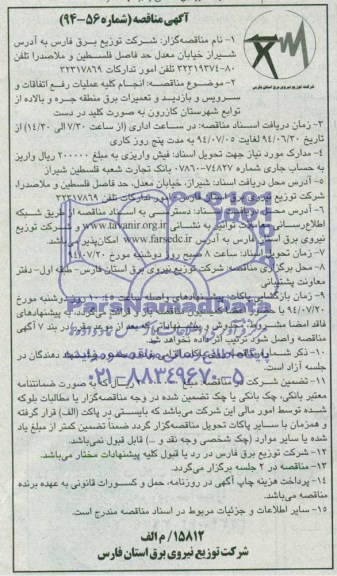 آگهی مناقصه (شماره ۵۶-۹۴)
شرکت توزیع نیروی برق استان فارس
۱- نام مناقصه‌گزار: شرکت توزیع برق فارس به آدرس
شیراز خیابان معدل حد فاصل فلسطین و ملاصدرا تلفن
۸۰-۳۲۳۱۹۳۷۴ تلفن امور تدارکات ۳۲۳۱۷۸۶۹
۲- موضوع مناقصه: انجام کلیه عملیات رفع اتفاقات و
سرویس و بازدید و تعمیرات برق منطقه جره و بالاده از
توابع شهرستان کازرون به صورت کلید در دست
۳- زمان دریافت اسناد مناقصه: در ساعت اداری (از ساعت ۷/۳۰ الی ۱۴/۳۰) از
تاریخ ۹۴/۰۶/۳۰ لغایت ۹۴/۰۷/۰۵ به مدت پنج روز کاری
۴- مدارک مورد نیاز جهت تحویل اسناد: فیش واریزی به مبلغ ۲۰۰۰۰۰ ریال واریز
به حساب جاری شماره ۰۷۸۶۰-۷۴۸۲۷ بانک تجارت شعبه فلسطین شیراز
۵- آدرس محل دریافت اسناد: شیراز، خیابان معدل، حد فاصل فلسطین و ملاصدرا،
شرکت توزیع نیروی برق استان فارس، امور تدارکات تلفن ۳۲۳۱۷۸۶۹
۶- آدرس محل دریافت اسناد: دسترسی به اسناد مناقصه از طریق شبکه
اطلاع‌رسانی معاملات توانیر به نشانی www.tavanir.org.ir و شرکت توزیع
نیروی برق استان فارس به آدرس www.farsedc.ir امکان‌پذیر می‌باشد.
۷- زمان تحویل اسناد: ساعت ۸ صبح روز دوشنبه مورخ ۹۴/۰۷/۲۰
۸- محل برگزاری مناقصه: شرکت توزیع نیروی برق استان فارس- طبقه اول- دفتر
معاونت پشتیبانی
۹- زمان بازگشایی پاکات: پیشنهادهای واصله ساعت ۱۰:۴۵ روز دوشنبه مورخ
۹۴/۰۷/۲۰ با حضور می‌گردد، به پیشنهادهای
فاقد امضا مشروط، مخدوش و پیشنهاداتی که بعد از موعد مقرر در بند ۷ آگهی
مناقصه واصل شود ترتیب اثر داده نخواهد شد.
۱۰- ذکر شماره مناقصه دهندگان در
جلسه آزاد است.
ParsNamadData
پایگاه اطلاع رسانی
۰۲۱-۸۸۳۴۹۶۷۰-۵
۱۱- تضمین شرکت در مناقصه: مبلغ ریال که به صورت ضمانتنامه
معتبر بانکی، چک بانکی یا چک تضمین شده در وجه مناقصه‌گزار یا مطالبات بلوکه
شده توسط امور مالی این شرکت می‌باشد که بایستی در پاکت (الف) قرار گرفته
و همزمان با سایر پاکات تحویل مناقصه‌گزار گردد ضمنا تضمین کمتر از مبلغ یاد
شده یا سایر موارد (چک شخصی وجه نقد و ...) قابل قبول نمی‌باشد.
۱۲- شرکت توزیع برق فارس در رد یا قبول کلیه پیشنهادات مختار می‌باشد.
۱۳- مناقصه در ۲ جلسه برگزار می‌گردد.
۱۴- پرداخت هزینه چاپ آگهی در روزنامه، حمل و کسورات قانونی به عهده برنده
مناقصه می‌باشد.
۱۵- سایر اطلاعات و جزئیات مربوط در اسناد مناقصه مندرج است.
۱۵۸۱۲/ م الف
شرکت توزیع نیروی برق استان فارس